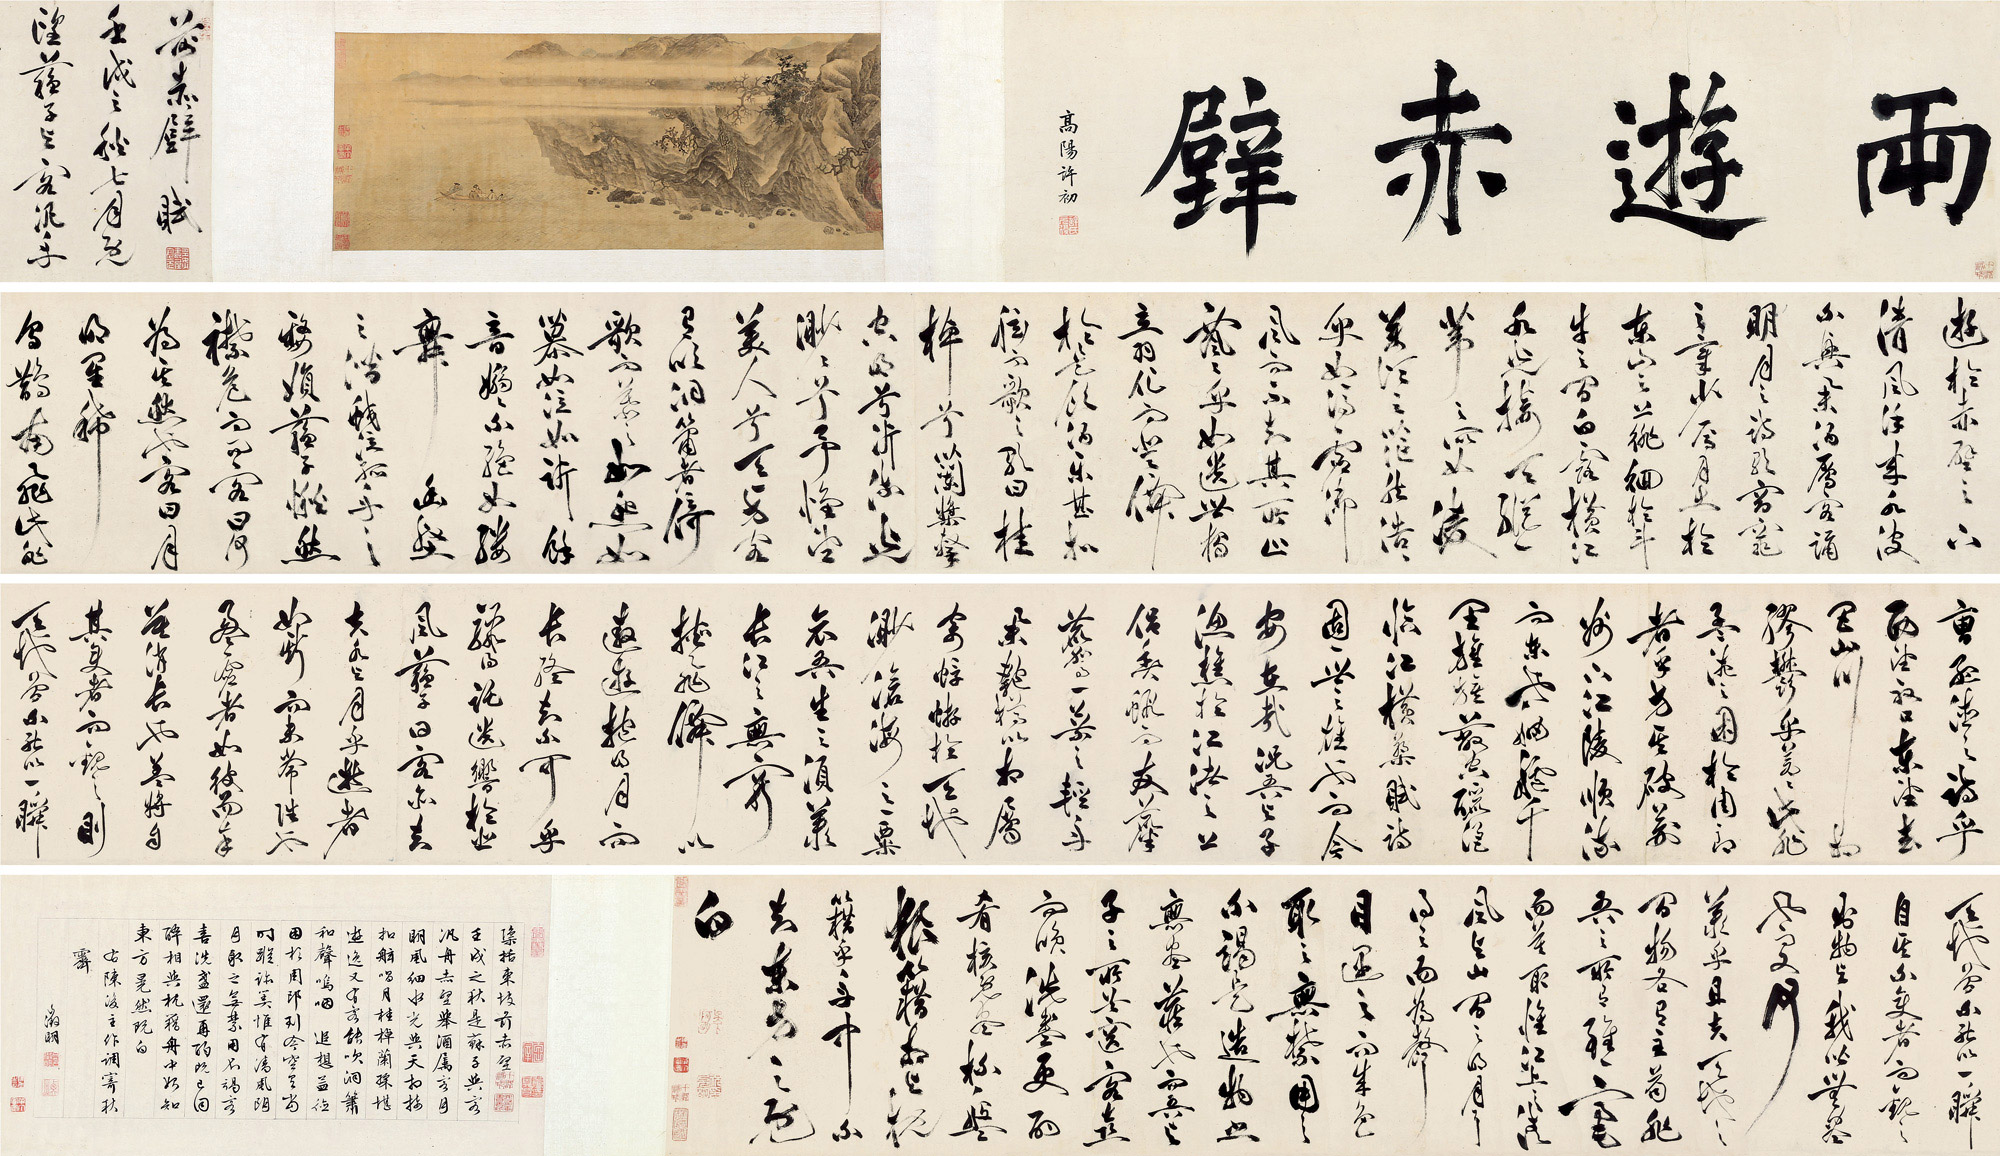 兩遊赤壁
高陽許初
前赤壁賦
壬戌之秋七月既
望蘇子與客汎舟
遊於赤壁之下
清風徐來水波
不興舉酒屬客誦
明月之詩歌窈窕
之章少焉月出於
東山之上徘徊於斗
牛之間白露橫江
水光接天縱一
葦之所如凌
萬頃之茫然浩浩
乎如馮虛御
風而不知其所止
飄飄乎如遺世獨
立羽化而登僊
於是飲酒樂甚扣
舷而歌之歌曰桂
棹兮蘭槳擊
空明兮泝流光
渺渺兮予懷望
美人兮天一方客
有吹洞簫者倚
歌而和之如怨如
慕如泣如訴餘
音嫋嫋不絕如縷
舞幽壑
之潛蛟泣孤舟之
嫠婦蘇子愀然
襟危而問客曰何
為其然也客曰月
明星稀
烏鵲南飛此非
曹孟德之詩乎
西望夏口東望武
昌山川相
繆鬱乎蒼蒼此非
孟德之困於周郎
者乎方其破荊
州下江陵順流
而東也舳艫千
里旌旗蔽空釃酒
臨江橫槊賦詩
固一世之雄也而今
安在哉況吾與子
漁樵於江渚之上
侶魚蝦而友麋
鹿駕一葉之輕舟
舉匏樽以相屬
寄蜉蝣於天地
渺滄海之一粟
哀吾生之須羨
長江之無窮
挾飛僊以
遨遊抱明月而
長終知不可乎
驟得託遺響於悲
風蘇子曰客亦知
夫水與月乎逝者
如斯而未嘗往也
盈虛者如彼而卒
莫消長也蓋將自
其變者而觀之則
天地曾不能以一瞬
天地曾不能以一瞬
自其不變者而觀之
則物與我皆無盡
也而又何
羨乎且夫天地之
間物各有主苟非
吾之所有雖一毫
而莫取惟江上之清
風與山間之明月耳
得之而為聲
目遇之而成色
取之無禁用之
不竭是造物
無盡藏也而吾與
子之所共適客喜
而笑洗盞更酌
肴核既盡杯盤
狼籍相與枕
籍乎舟中不
知東方之既
白
檃括東坡前赤壁
壬戌之秋是蘇子與客
汎舟赤壁舉酒屬客月
明風細水光與天相接
扣舷唱月桂棹蘭槳堪
遊逸又有客能吹洞簫
和聲嗚咽 追想孟德
困於周郎到今空有當
時蹤跡算惟有清風朗
月取之無禁用不竭客
喜洗盞還再酌既已同
醉相與枕藉舟中始知
東方晃然既白
右陳後主作調寄秋
霽
徵明